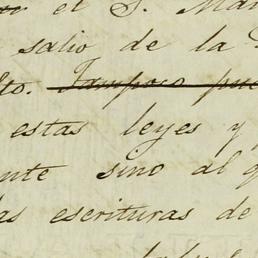 el S. Mar
salio de la
to. Tampoco pue
estas leyes y
nte sino al q
as escrituras de